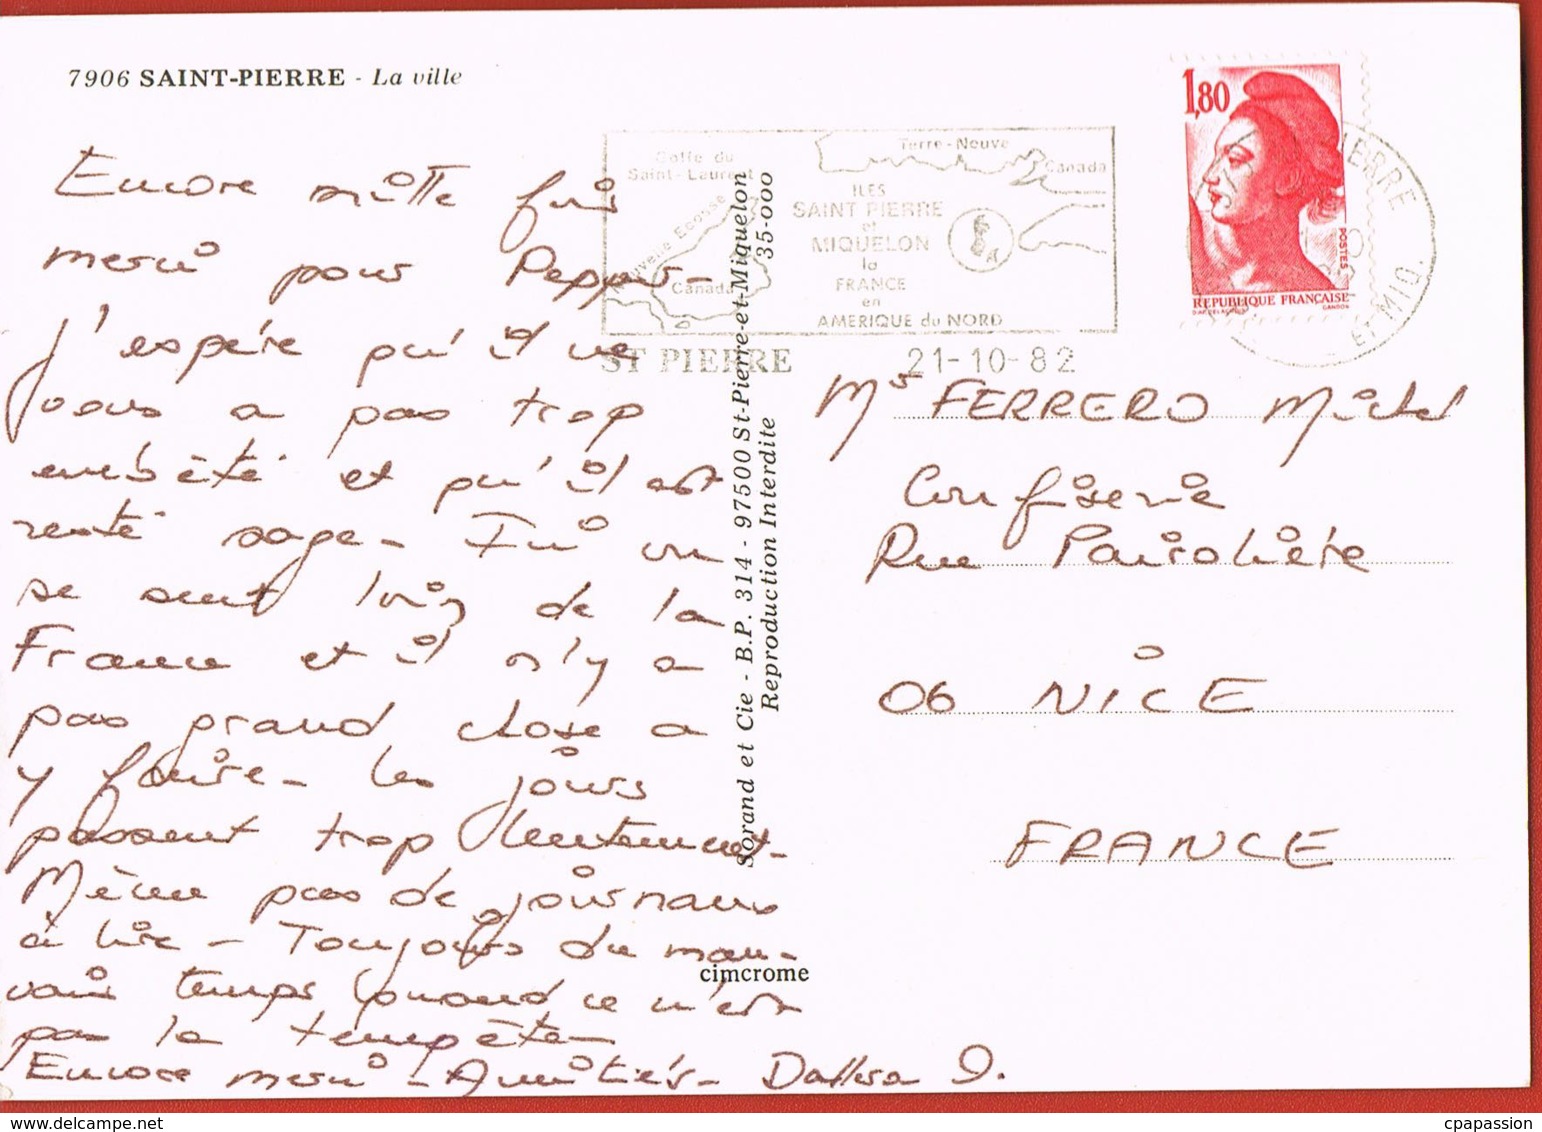 7906 SAINT-PIERRE - La ville
Encore mille fois
merci pour Pepper -
J'espère qu'il ne
vous a pas trop
embêté et qu'il est
resté sage - Ici on
se sent loin de la
France et il n'y a
pas grand chose à
y faire - les jours
passent trop lentement -
Même pas de journaux
à lire - Toujours du mau-
vais temps quand ce n'est
pas la tempête -
Encore merci - Amitiés -
Sorand et Cie - B.P. 314 - 97500 St-Pierre-et-Miquelon
Reproduction Interdite 35-000
cimcrome
Golfe du
Saint-Laurent
Nouvelle Ecosse
Canada
Terre-Neuve
Canada
ILES
SAINT PIERRE
et
MIQUELON
la
FRANCE
en
AMERIQUE du NORD
ST PIERRE 21-10-82
1,80
POSTES
REPUBLIQUE FRANÇAISE
GANDON
PIERRE
ET MIQ.
Mr FERRERO Michel
Confiserie
Rue Pairolière
06 NICE
FRANCE
cpapassion